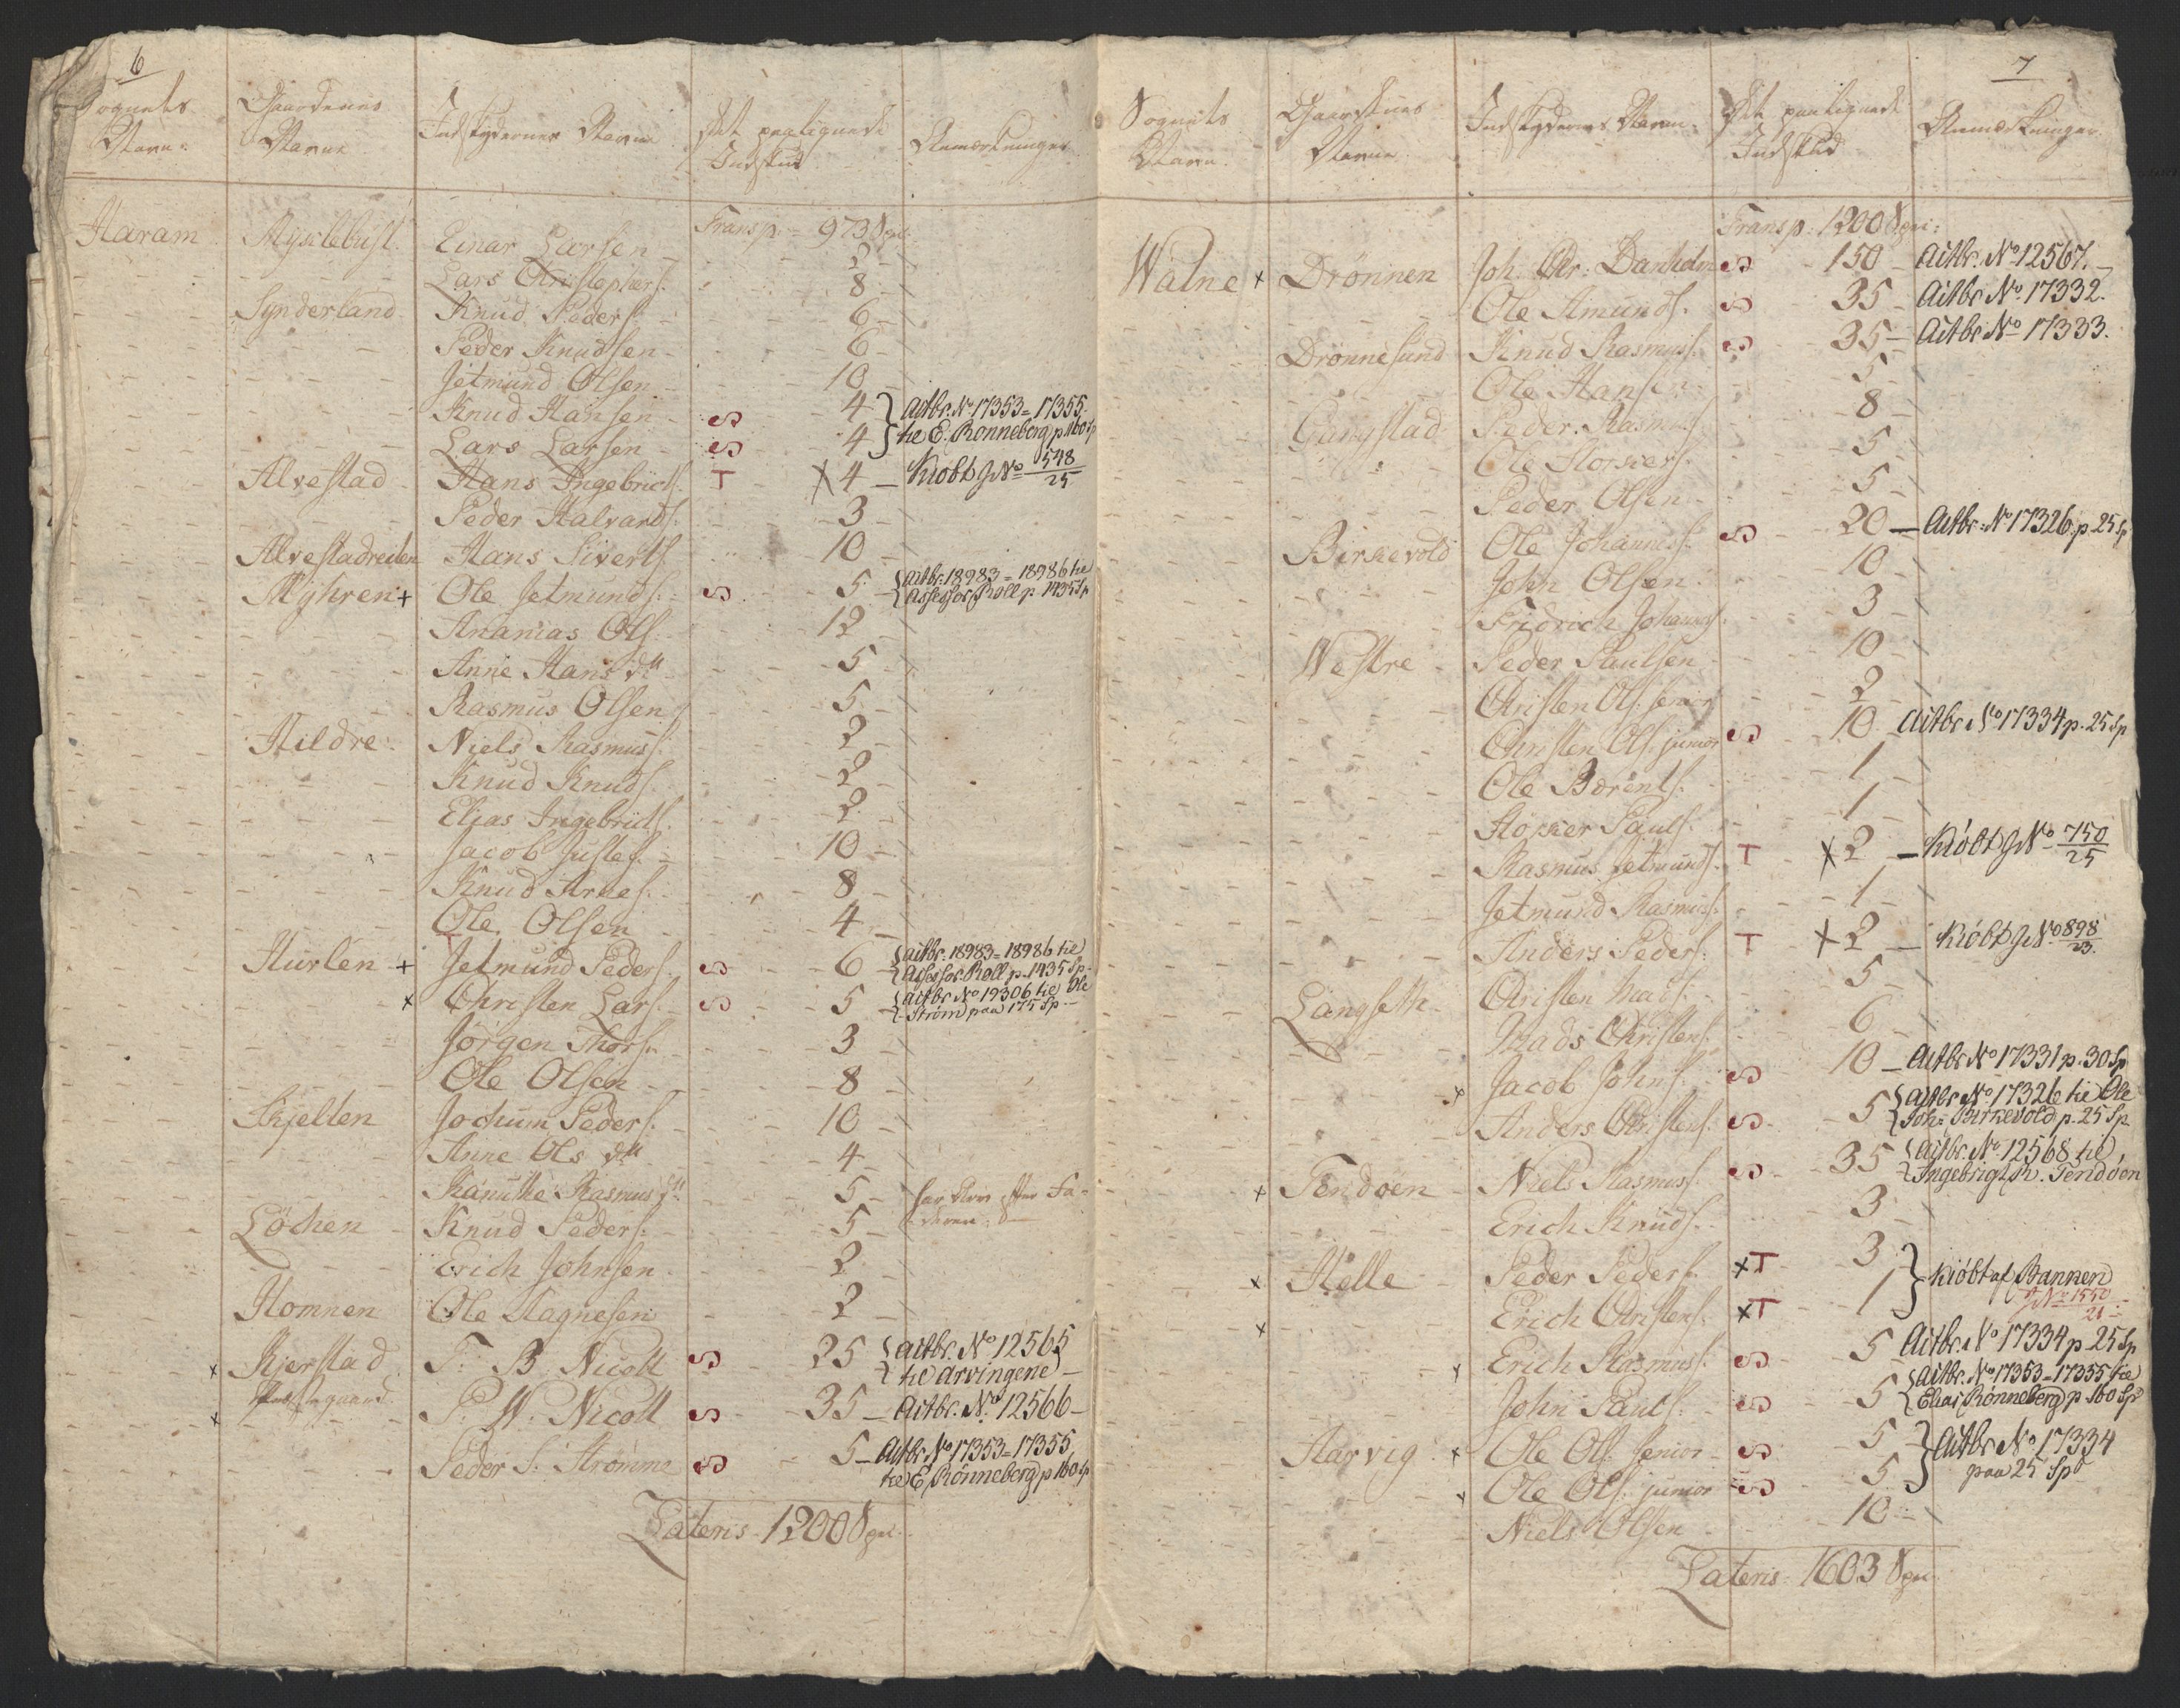 6
Sognets Navn. Gaardenes Navne Indskydernes Navne Det paalignede Indskud Anmærkninger
Transp. 973 Spd.
Haram Myclebust Einar Larsen 2
Lars Christophers. 8
Synderland Knud Peders. 6
Peder Knudsen 6
Jetmund Olsen 10
Knud Hansen S 4 } Actbr. No 17353=17355
Lars Larsen S 4 } til E. Rønneberg p 160 Sp
Alvestad Hans Ingebrigts. T X 4 Kiøbt J No 548/25
Peder Halvards. 3
Alvestadreiten Hans Siverts. 10
Myhren + Ole Jetmunds. S 5 { Actbr. 18983=18986 til Assessor Roll p. 1435 Sp
Ananias Ols. 12
Anne Hans dtr 5
Rasmus Olsen 5
Hildre Niels Rasmus. 2
Knud Knuds. 2
Elias Ingebrigts. 2
Jacob Justes. 10
Knud Arnes. 8
Ole Olsen 4
Hurlen + Jetmund Peders. S 6 { Actbr. 18983=18986 til Assessor Roll p. 1435 Sp.
x Christen Lars. S 5 { Actbr No 19306 til Ole Strøm paa 175 Sp.
Jørgen Thors. 3
Ole Olsen 8
Skjelten Jochum Peders. 10
Anne Ols dtr 4
Kanutte Rasmus dtr 5
Løchen Knud Peders. 5
Erich Johnsen 2
Homnen Ole Hagnesen 2
x Kjerstad T. B. Nicoll S 25 { Actbr. No 12565 til Arvingene
x P. W. Nicoll S 35 Actbr. No. 12566
Peder S. Strømme S 5 Actbr No 17353=17355 til E. Rønneberg p 160 Sp
Lateris 1200 Spd.
7
Sognets Navn. Gaardenes Navne Indskydernes Navne. Det paalignede Indskud Anmærkninger.
Transp. 1200 Spd.
Watne x Drønnen Joh. Chr. Danholm S 150 Actbr. No 12567.
Ole Amunds. S 35 Actbr No. 17332.
Drønnesund Knud Rasmuss. S 35 Actbr No 17333.
Ole Hansen 5
Gangstad Peder Rasmuss. 8
Ole Hopkers. 5
Peder Olsen 5
Birkevold Ole Johanness. S 20 Actbr. No 17326 p. 25 Sp
John Olsen 10
Fridrich Johanness. 3
Westre Peder Paulsen 10
Christen Ols. senior 2
Christen Ols. junior S 10 Actbr No 17334 p. 25 Sp
Ole Bærents. 1
Hopker Pauls. 1
Rasmus Jetmunds. T X 2 Kiøbt J No 750/25
Jetmund Rasmuss. 1
Anders Peders. T X 2 Kiøbt J No 898/23.
Langseth Christen Mads. 5
Mads Christens. 6
x Jacob Johns. S 10 Actbr No 17331 p. 30 Sp
Anders Christens. S 5 { Actbr No 17326 til Ole Joh: Birkevold p. 25 Sp
x Tendøen Niels Rasmus. S 35 { Actbr. No. 12568 til Ingebrigt R. Tendøen
Erich Knuds. 3
x Helle Peder Peders. xT 3 } Kiøbt af Banken
x Erich Christens. xT 1 } J No 1550/21
x Erich Rasmus. S 5 Actbr. No 17334 p. 25 Sp
John Pauls. S 5 { Actbr. No 17353=17355 til Elias Rønneberg p 160 Sp
Harvig x Ole Ols. senior S 5 } Actbr No 17334
x Ole Ols. junior S 5 } paa 25 Sp
Niels Olsen 10
Lateris 1603 Spd.